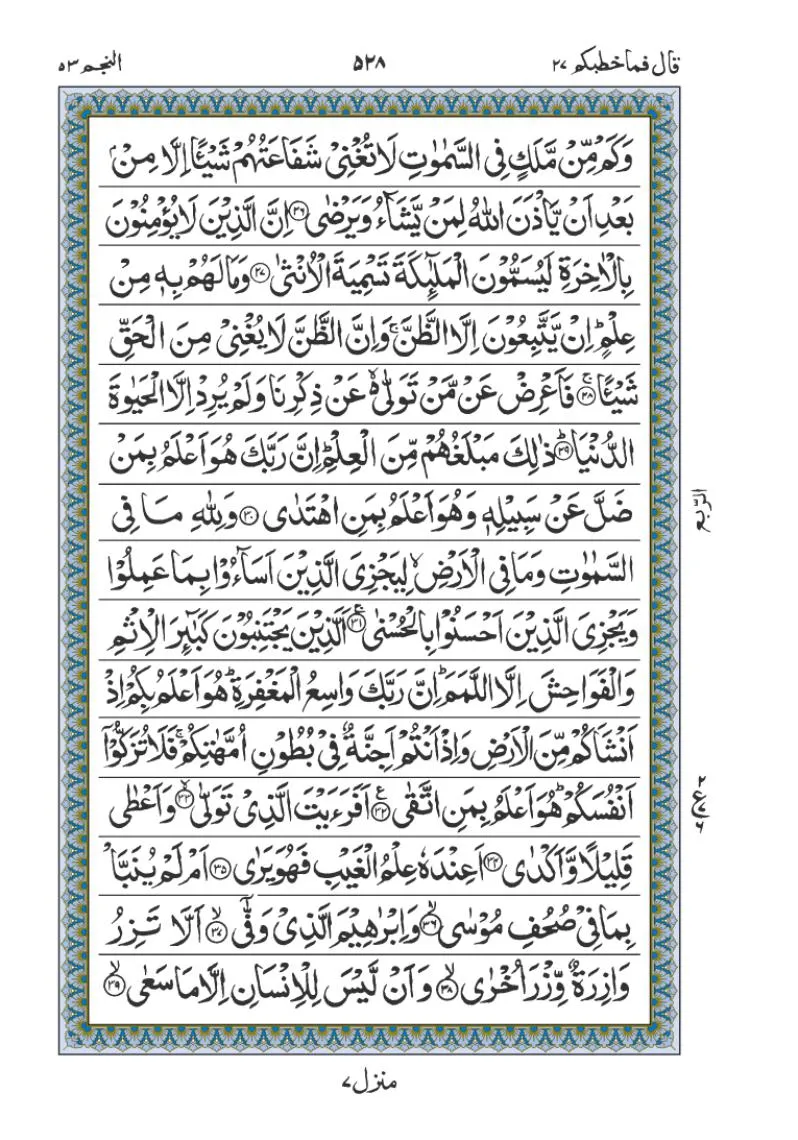 قال فماخطبكم ٢٧
٥٢٨
النجم ٥٣
وَكَمْ مِّنْ مَّلَكٍ فِی السَّمٰوٰتِ لَا تُغْنِیْ شَفَاعَتُهُمْ شَیْـًٔا اِلَّا مِنْۢ
بَعْدِ اَنْ یَّاْذَنَ اللّٰهُ لِمَنْ یَّشَآءُ وَیَرْضٰی ﴿۲۶﴾ اِنَّ الَّذِیْنَ لَا یُؤْمِنُوْنَ
بِالْاٰخِرَةِ لَیُسَمُّوْنَ الْمَلٰٓئِكَةَ تَسْمِیَةَ الْاُنْثٰی ﴿۲۷﴾ وَمَا لَهُمْ بِهٖ مِنْ
عِلْمٍ ؕ اِنْ یَّتَّبِعُوْنَ اِلَّا الظَّنَّ ۚ وَاِنَّ الظَّنَّ لَا یُغْنِیْ مِنَ الْحَقِّ
شَیْـًٔا ﴿ۚ۲۸﴾ فَاَعْرِضْ عَنْ مَّنْ تَوَلّٰی ۙ۬ عَنْ ذِكْرِنَا وَلَمْ یُرِدْ اِلَّا الْحَیٰوةَ
الدُّنْیَا ﴿ؕ۲۹﴾ ذٰلِكَ مَبْلَغُهُمْ مِّنَ الْعِلْمِ ؕ اِنَّ رَبَّكَ هُوَ اَعْلَمُ بِمَنْ
ضَلَّ عَنْ سَبِیْلِهٖ وَهُوَ اَعْلَمُ بِمَنِ اهْتَدٰی ﴿۳۰﴾ وَلِلّٰهِ مَا فِی
السَّمٰوٰتِ وَمَا فِی الْاَرْضِ ۙ لِیَجْزِیَ الَّذِیْنَ اَسَآءُوْا بِمَا عَمِلُوْا
وَیَجْزِیَ الَّذِیْنَ اَحْسَنُوْا بِالْحُسْنٰی ﴿ۚ۳۱﴾ اَلَّذِیْنَ یَجْتَنِبُوْنَ كَبٰٓئِرَ الْاِثْمِ
وَالْفَوَاحِشَ اِلَّا اللَّمَمَ ؕ اِنَّ رَبَّكَ وَاسِعُ الْمَغْفِرَةِ ؕ هُوَ اَعْلَمُ بِكُمْ اِذْ
اَنْشَاَكُمْ مِّنَ الْاَرْضِ وَاِذْ اَنْتُمْ اَجِنَّةٌ فِیْ بُطُوْنِ اُمَّهٰتِكُمْ ۚ فَلَا تُزَكُّوْۤا
اَنْفُسَكُمْ ؕ هُوَ اَعْلَمُ بِمَنِ اتَّقٰی ﴿۳۲﴾ اَفَرَءَیْتَ الَّذِیْ تَوَلّٰی ﴿ۙ۳۳﴾ وَاَعْطٰی
قَلِیْلًا وَّاَكْدٰی ﴿۳۴﴾ اَعِنْدَهٗ عِلْمُ الْغَیْبِ فَهُوَ یَرٰی ﴿۳۵﴾ اَمْ لَمْ یُنَبَّاْ
بِمَا فِیْ صُحُفِ مُوْسٰی ﴿ۙ۳۶﴾ وَاِبْرٰهِیْمَ الَّذِیْ وَفّٰۤی ﴿ۙ۳۷﴾ اَلَّا تَزِرُ
وَازِرَةٌ وِّزْرَ اُخْرٰی ﴿ۙ۳۸﴾ وَاَنْ لَّیْسَ لِلْاِنْسَانِ اِلَّا مَا سَعٰی ﴿ۙ۳۹﴾
الرّبع
منزل٧